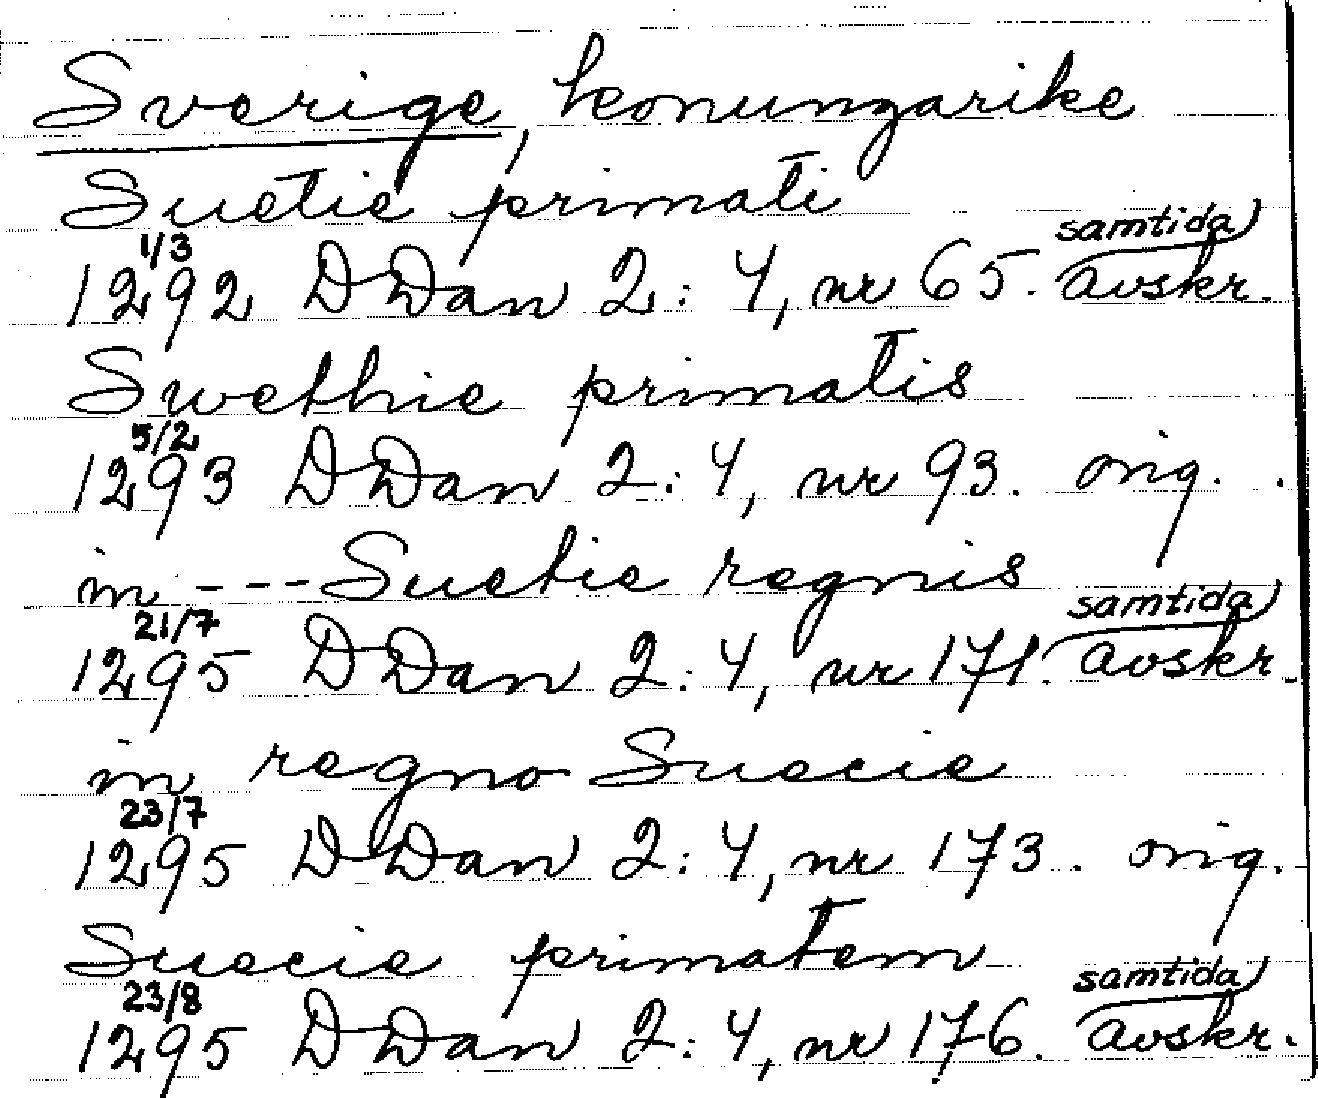 Sverige, konungarike
Suetie primati
1/3 samtida
1292 DDan 2:4, nr 65. avskr.
Swethie primatis
5/2
1293 DDan 2:4, nr 93. orig.
in --- Suetie regnis
21/7 samtida
1295 DDan 2:4, nr 171. avskr.
in regno Suecie
23/7
1295 DDan 2:4, nr 173. orig.
Suecie primatem
23/8 samtida
1295 DDan 2:4, nr 176. avskr.